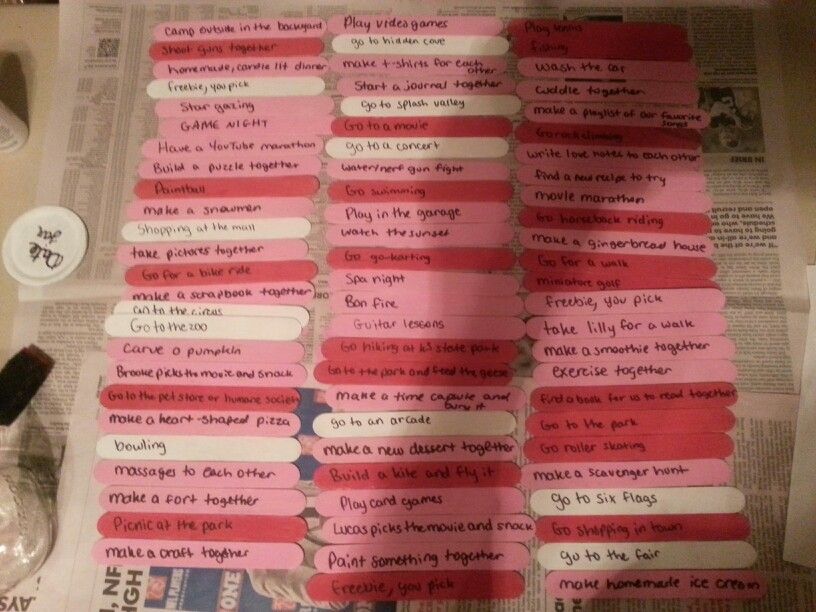 camp outside in the backyard
shoot guns together
homemade, candle lit dinner
freebie, you pick
Star gazing
GAME NIGHT
Have a YouTube marathon
Build a puzzle together
Paintball
make a snowman
Shopping at the mall
take pictures together
Go for a bike ride
make a scrapbook together
Go to the circus
Go to the zoo
Carve a pumpkin
Brooke picks the movie and snack
Go to the pet store or humane society
make a heart-shaped pizza
bowling
massages to each other
make a fort together
Picnic at the park
make a craft together
Play video games
go to hidden cove
make t-shirts for each
other
Start a journal together
go to splash valley
Go to a movie
go to a concert
water/nerf gun fight
Go swimming
Play in the garage
watch the sunset
Go go-karting
Spa night
Bon fire
Guitar lessons
Go hiking at
state park
Go to the park and feed the geese
make a time capsule and
bury it
go to an arcade
make a new dessert together
Build a kite and fly it
Play card games
Lucas picks the movie and snack
Paint something together
Freebie, you pick
Play tennis
fishing
wash the car
cuddle together
make a playlist of our favorite
songs
Go rock climbing
write love notes to each other
find a new recipe to try
movie marathon
Go horseback riding
make a gingerbread house
Go for a walk
miniature golf
freebie, you pick
take lilly for a walk
make a smoothie together
exercise together
find a book for us to read together
Go to the park
Go roller skating
make a scavenger hunt
go to six flags
Go shopping in town
go to the fair
make homemade ice cream
Date
Jar
IN BRIEF